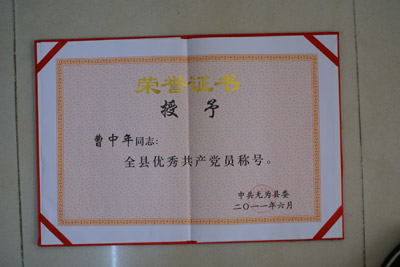 荣誉证书
授予
曹中年同志：
全县优秀共产党员称号。
中共无为县委
二〇一一年六月